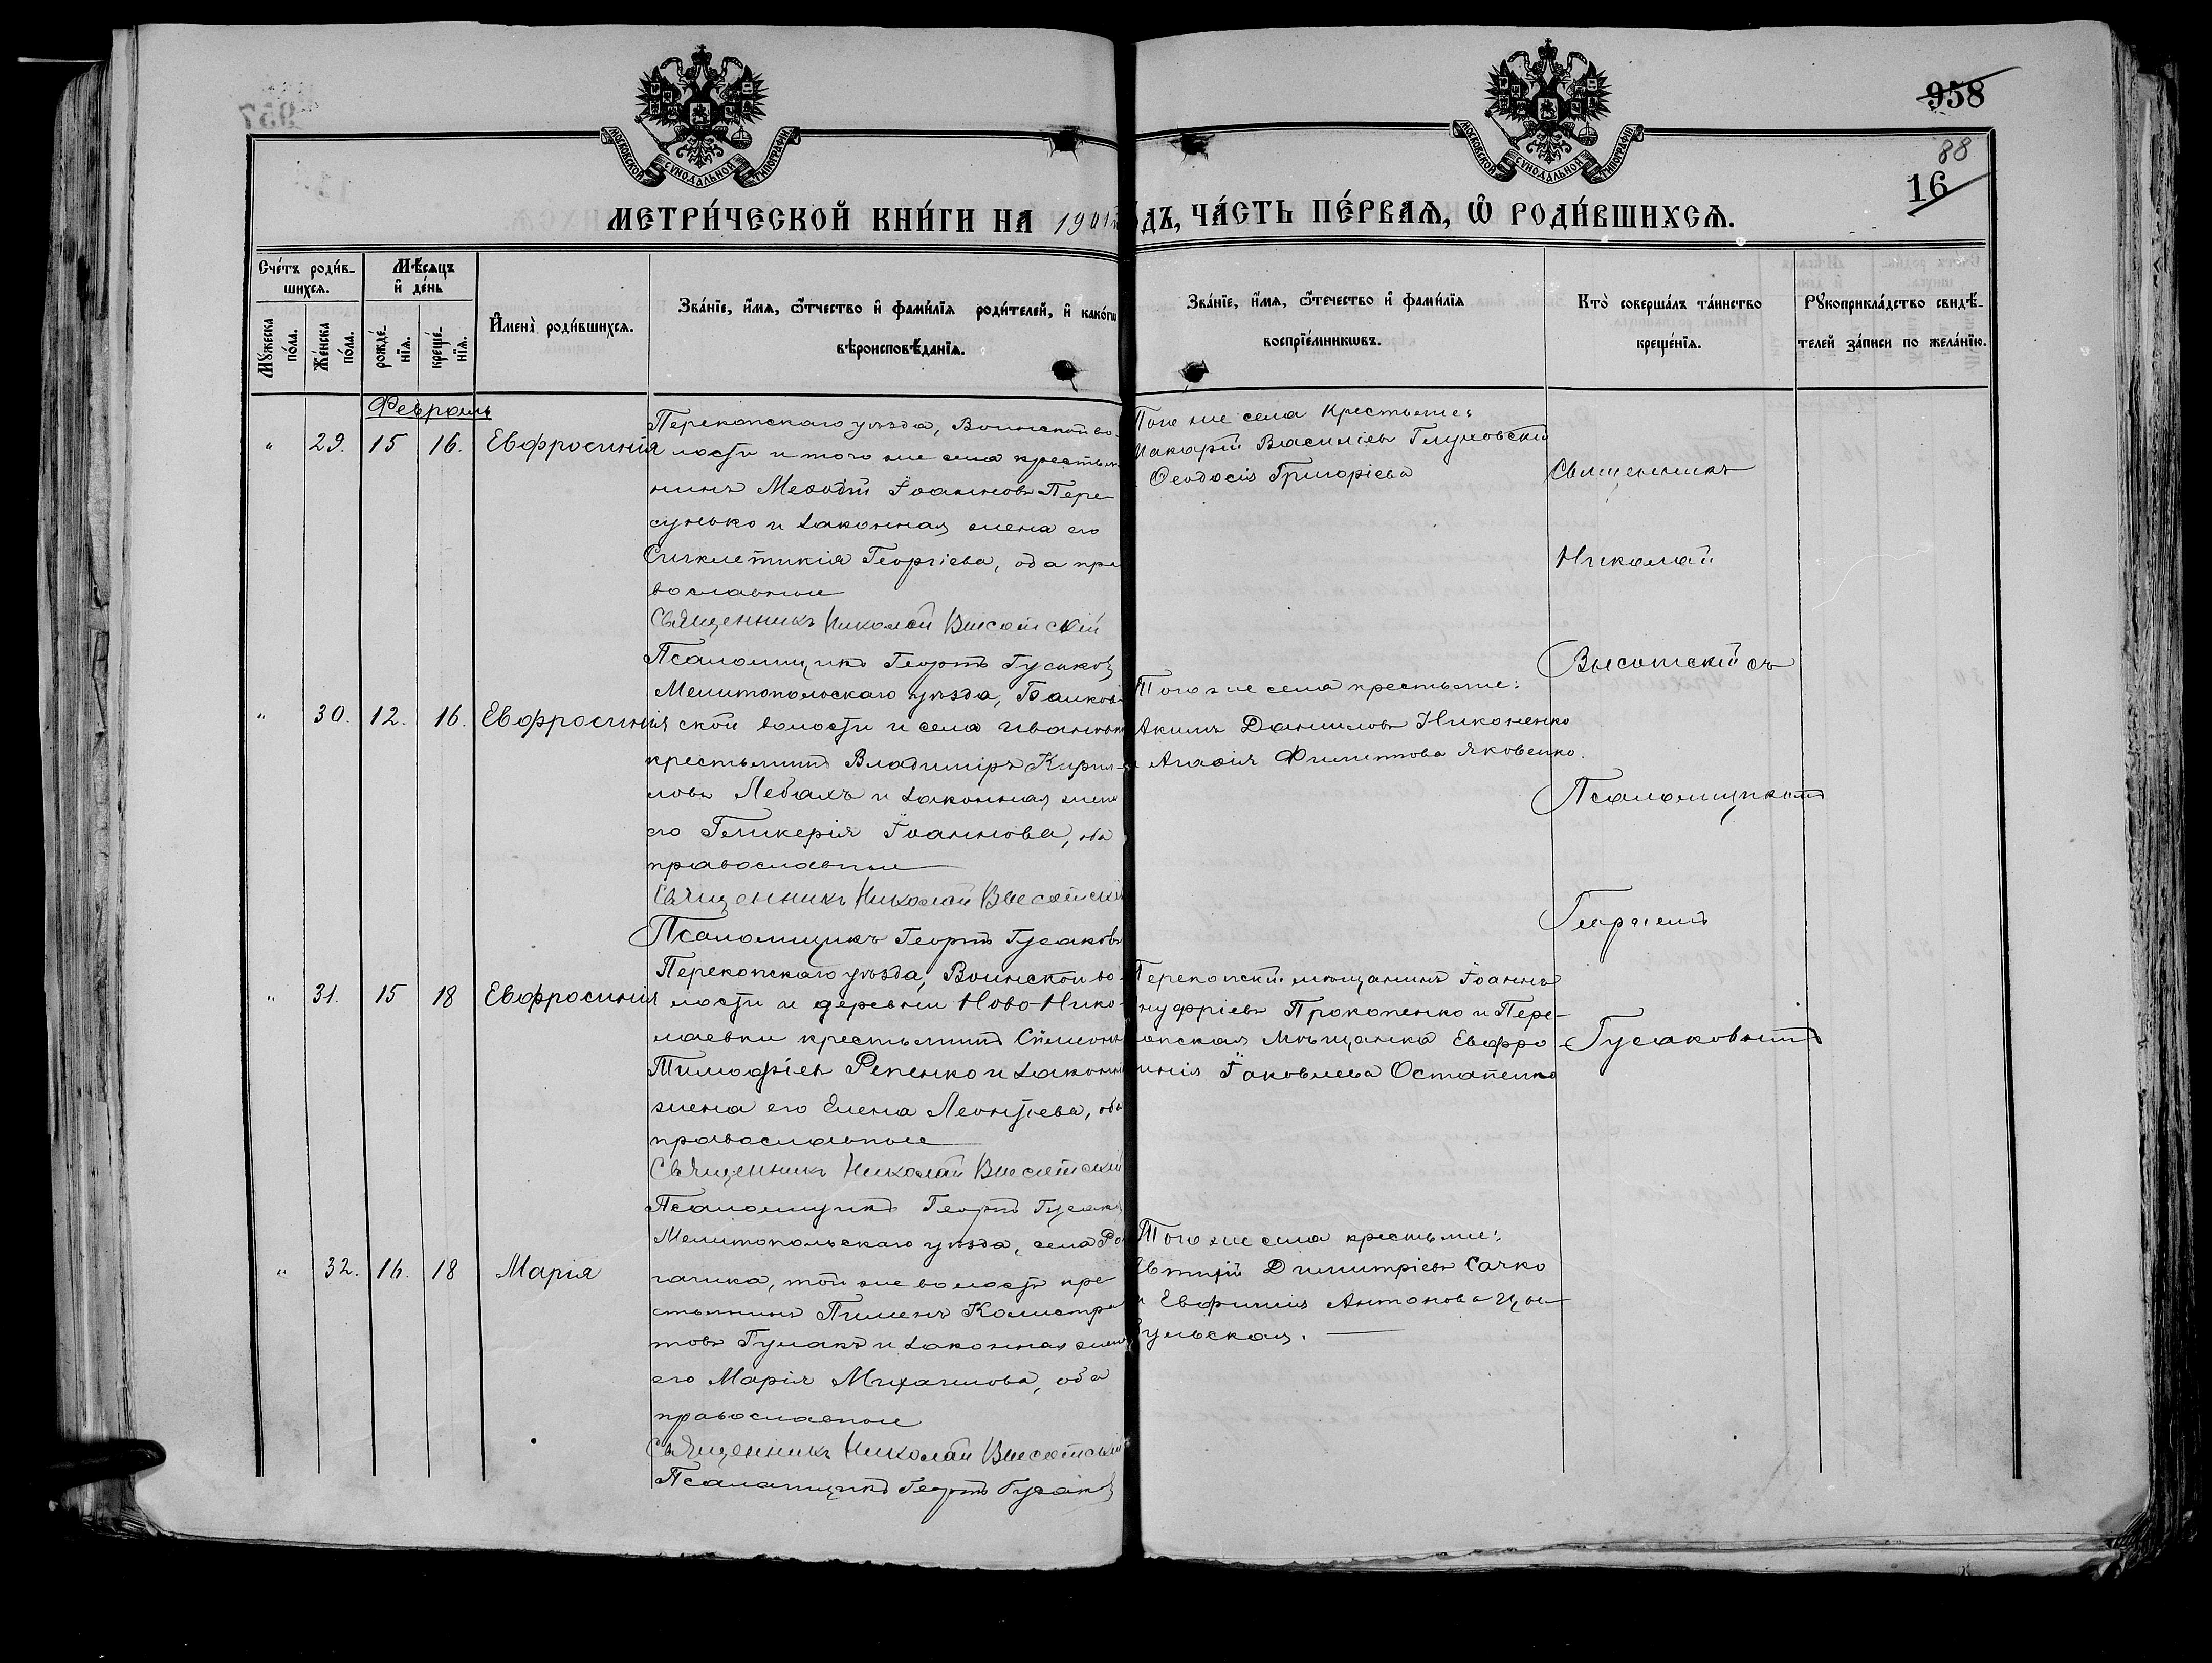 958
88
16
МОСКОВСКОЙ СУНОДАЛЬНОЙ ТИПОГРАФІИ
МОСКОВСКОЙ СУНОДАЛЬНОЙ ТИПОГРАФІИ
МЕТРИ́ЧЕСКОЙ КНИ́ГИ НА 1901
ДЪ, ЧА́СТЬ ПЕ́РВАЯ, Ѡ҆ РОДИ́ВШИХСЯ.
Сче́тъ роди́в-
шихся.
Мѣ́сяцъ
и҆ де́нь
Мꙋжеска
по́ла.
Же́нска
по́ла.
рожде́-
нїя.
креще́-
нїя.
И҆мена̀ роди́вшихся.
Зва́нїе, и҆́мя, ѻ҆́тчество и҆ фами́лїя роди́телей, и҆ како́гѡ
вѣроисповѣ́данїя.
Зва́нїе, и҆́мя, ѻ҆́течество и҆ фами́лїя
воспрїе́мниковъ.
Кто̀ соверша́лъ та́инство
креще́нїя.
Рꙋкоприкла́дство свидѣ́-
телей за́писи по жела́нїю.
Февраль
" 29. 15 16. Евфросинія
Перекопскаго уѣзда, Воинской во-
лости и того же села крестья-
нинъ Меѳодій Іоанновъ Пере-
сунько и законная жена его
Сигклитикія Георгіева, оба пра
вославные
Священникъ Николай Высотскій
Псаломщикъ Георгій Гусаковъ
Того же села крестьяне:
Макарій Василіевъ Глуховскій
Ѳеодосія Григоріева
Священникъ
Николай
Высотскій съ
Псаломщикомъ
Георгіемъ
Гусаковымъ
" 30. 12. 16. Евфросинія
Мелитопольскаго уѣзда, Балков-
ской волости и села Ивановки
крестьянинъ Владиміръ Кирил-
ловъ Лебахъ и законная жена
его Гликерія Іоаннова, оба
православные
Священникъ Николай Высотскій
Псаломщикъ Георгій Гусаковъ
Того же села крестьяне:
Акимъ Даниловъ Никоненко
и Агафія Филиппова Яковенко.
" 31. 15 18 Евфросинія
Перекопскаго уѣзда, Воинской во-
лости и деревни Ново-Нико-
лаевки крестьянинъ Симеонъ
Тимофіевъ Репенко и законн
жена его Елена Леонтіева, оба
православные
Священникъ Николай Высотскій
Псаломщикъ Георгій Гусаковъ
Перекопскій мѣщанинъ Іоаннъ
нуфріевъ Прокопенко и Пере-
копская мѣщанка Евфро-
синія Іаковлева Остапенко
" 32. 16. 18 Марія
Мелитопольскаго уѣзда, села Ро
гачика, той же волости кре
стьянинъ Пименъ Калистра
товъ Гумакъ и законная жена
его Марія Михаилова, оба
православные
Священникъ Николай Высотскій
Псаломщикъ Георгій Гусаковъ
Того же села крестьяне:
Евтихій Димитріевъ Сачко
и Евфимія Антонова Цы-
бульская.